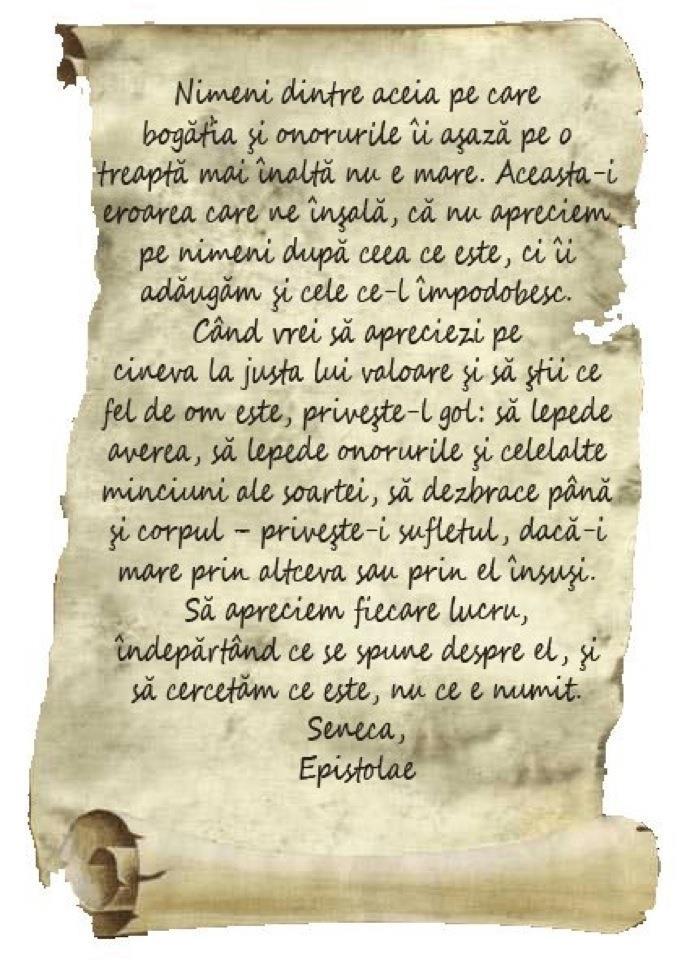 Nimeni dintre aceia pe care
bogăția şi onorurile îi aşază pe o
treaptă mai înaltă nu e mare. Aceasta-i
eroarea care ne înşală, că nu apreciem
pe nimeni după ceea ce este, ci îi
adăugăm şi cele ce-l împodobesc.
Când vrei să apreciezi pe
cineva la justa lui valoare şi să ştii ce
fel de om este, priveşte-l gol: să lepede
averea, să lepede onorurile şi celelalte
minciuni ale soartei, să dezbrace până
şi corpul – priveşte-i sufletul, dacă-i
mare prin altceva sau prin el însuşi.
Să apreciem fiecare lucru,
îndepărtând ce se spune despre el, şi
să cercetăm ce este, nu ce e numit.
Seneca,
Epistolae